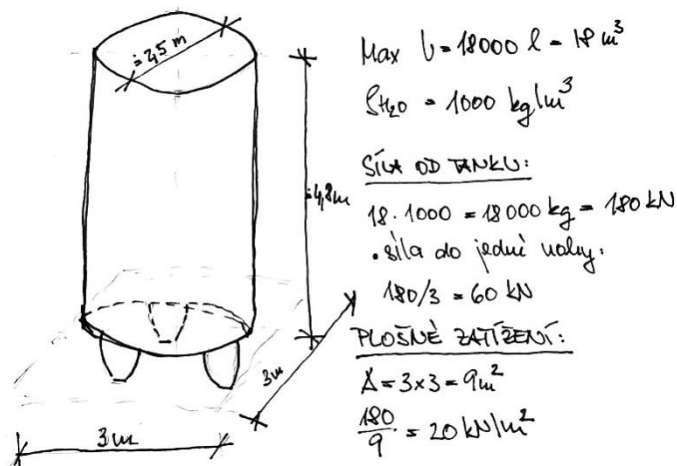 ≐ 2,5 m
≐ 4,8 m
3m
3m
Max V = 18000 l = 18 m³
ρH₂O = 1000 kg/m³
SÍLA OD TANKU:
18 . 1000 = 18000 kg = 180 kN
• síla do jedné nohy:
180/3 = 60 kN
PLOŠNÉ ZATÍŽENÍ:
A = 3 x 3 = 9m²
180/9 = 20 kN/m²